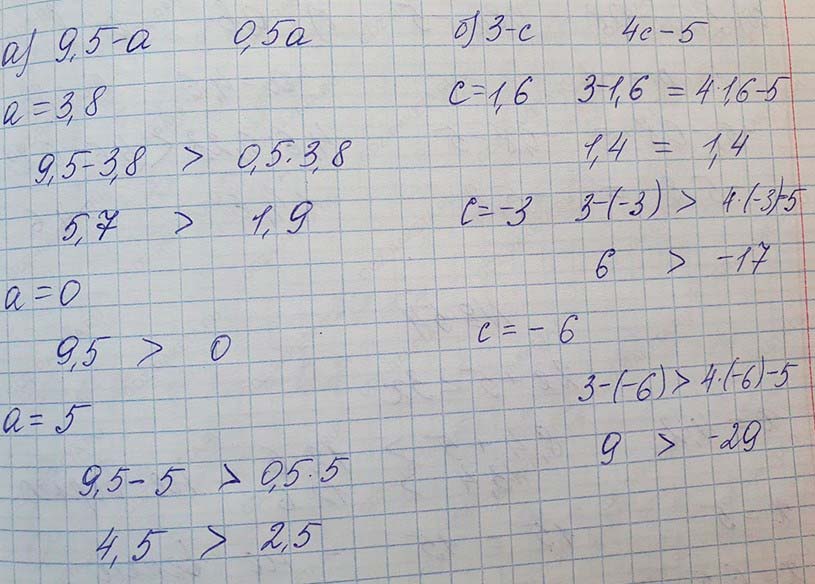 а) 9,5-а 0,5а
а = 3,8
9,5-3,8 > 0,5·3,8
5,7 > 1,9
а = 0
9,5 > 0
а = 5
9,5-5 > 0,5·5
4,5 > 2,5
б) 3-с 4с-5
с=1,6 3-1,6 = 4·1,6-5
1,4 = 1,4
с=-3 3-(-3) > 4·(-3)-5
6 > -17
с = -6
3-(-6) > 4·(-6)-5
9 > -29